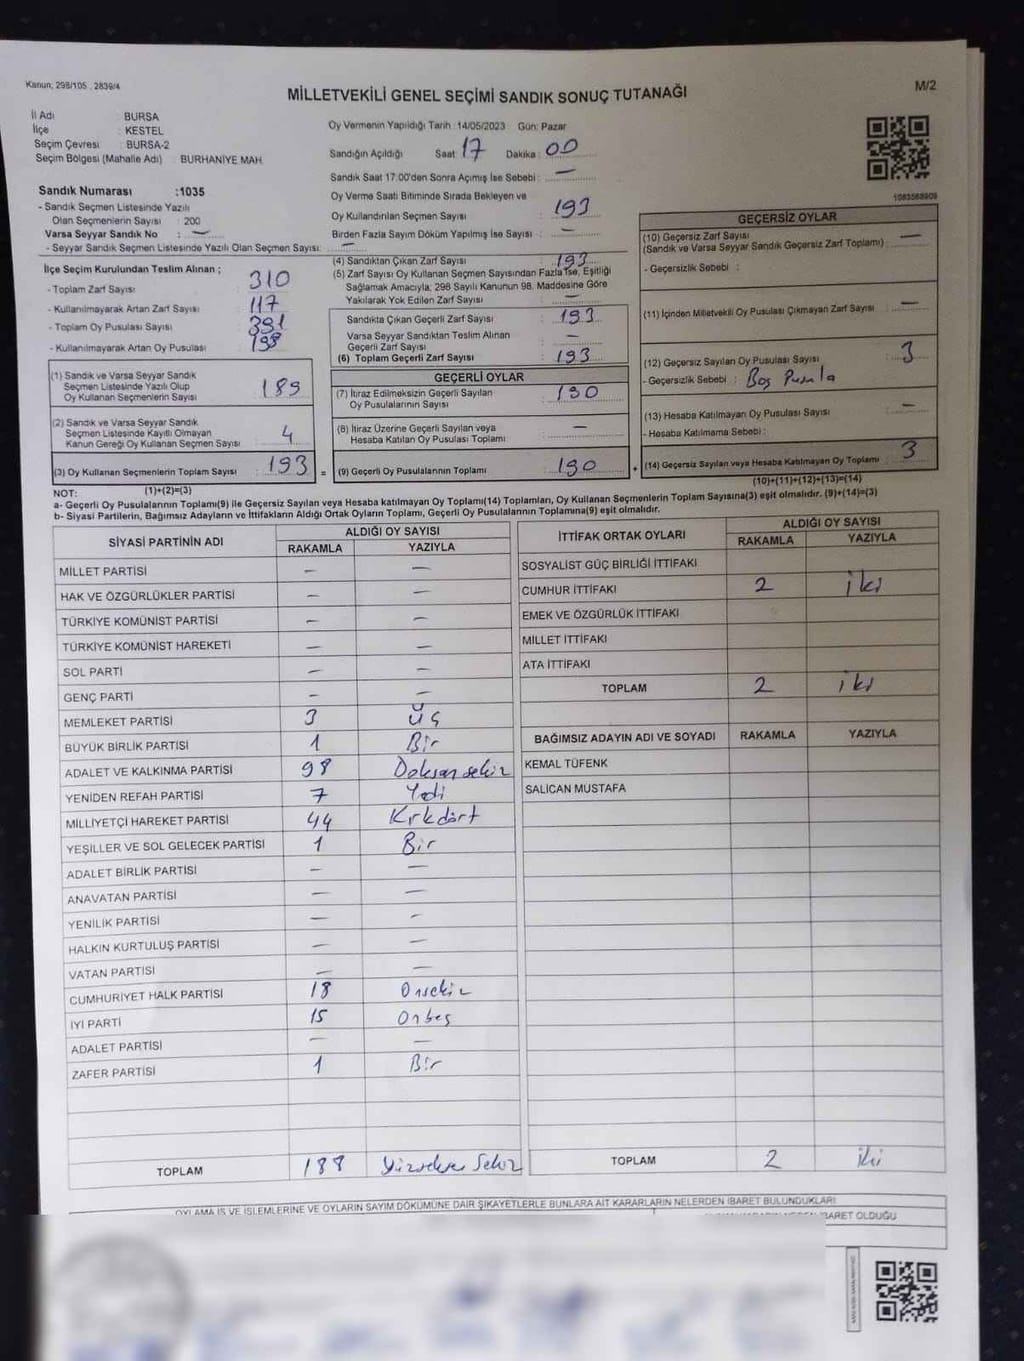 Kanun; 298/105 . 2839/4
M/2
MİLLETVEKİLİ GENEL SEÇİMİ SANDIK SONUÇ TUTANAĞI
İl Adı : BURSA
İlçe : KESTEL
Seçim Çevresi : BURSA-2
Seçim Bölgesi (Mahalle Adı) : BURHANİYE MAH.
Oy Vermenin Yapıldığı Tarih :14/05/2023 Gün: Pazar
Sandığın Açıldığı Saat : 17 Dakika : 00
Sandık Saat 17.00'den Sonra Açılmış İse Sebebi : —
Oy Verme Saati Bitiminde Sırada Bekleyen ve
Oy Kullandırılan Seçmen Sayısı : 193
Birden Fazla Sayım Döküm Yapılmış İse Sayısı : —
Sandık Numarası :1035
- Sandık Seçmen Listesinde Yazılı
Olan Seçmenlerin Sayısı : 200
Varsa Seyyar Sandık No : —
- Seyyar Sandık Seçmen Listesinde Yazılı Olan Seçmen Sayısı: —
İlçe Seçim Kurulundan Teslim Alınan ;
- Toplam Zarf Sayısı : 310
- Kullanılmayarak Artan Zarf Sayısı : 117
- Toplam Oy Pusulası Sayısı : 391
- Kullanılmayarak Artan Oy Pusulası : 198
(1) Sandık ve Varsa Seyyar Sandık
Seçmen Listesinde Yazılı Olup
Oy Kullanan Seçmenlerin Sayısı : 189
(2) Sandık ve Varsa Seyyar Sandık
Seçmen Listesinde Kayıtlı Olmayan
Kanun Gereği Oy Kullanan Seçmen Sayısı : 4
(3) Oy Kullanan Seçmenlerin Toplam Sayısı : 193
(1)+(2)=(3)
(4) Sandıktan Çıkan Zarf Sayısı : 193
(5) Zarf Sayısı Oy Kullanan Seçmen Sayısından Fazla İse, Eşitliği
Sağlamak Amacıyla; 298 Sayılı Kanunun 98. Maddesine Göre
Yakılarak Yok Edilen Zarf Sayısı : —
Sandıkta Çıkan Geçerli Zarf Sayısı : 193
Varsa Seyyar Sandıktan Teslim Alınan
Geçerli Zarf Sayısı : —
(6) Toplam Geçerli Zarf Sayısı : 193
GEÇERLİ OYLAR
(7) İtiraz Edilmeksizin Geçerli Sayılan
Oy Pusulalarının Sayısı : 190
(8) İtiraz Üzerine Geçerli Sayılan veya
Hesaba Katılan Oy Pusulası Toplamı : —
= (9) Geçerli Oy Pusulalarının Toplamı : 190 +
1083568909
GEÇERSİZ OYLAR
(10) Geçersiz Zarf Sayısı : —
(Sandık ve Varsa Seyyar Sandık Geçersiz Zarf Toplamı)
- Geçersizlik Sebebi :
(11) İçinden Milletvekili Oy Pusulası Çıkmayan Zarf Sayısı : —
(12) Geçersiz Sayılan Oy Pusulası Sayısı : 3
- Geçersizlik Sebebi : Boş Pusula
(13) Hesaba Katılmayan Oy Pusulası Sayısı : —
- Hesaba Katılmama Sebebi :
(14) Geçersiz Sayılan veya Hesaba Katılmayan Oy Toplamı : 3
(10)+(11)+(12)+(13)=(14)
NOT:
a- Geçerli Oy Pusulalarının Toplamı(9) ile Geçersiz Sayılan veya Hesaba katılmayan Oy Toplamı(14) Toplamları, Oy Kullanan Seçmenlerin Toplam Sayısına(3) eşit olmalıdır. (9)+(14)=(3)
b- Siyasi Partilerin, Bağımsız Adayların ve İttifakların Aldığı Ortak Oyların Toplamı, Geçerli Oy Pusulalarının Toplamına(9) eşit olmalıdır.
SİYASİ PARTİNİN ADI ALDIĞI OY SAYISI
RAKAMLA YAZIYLA
MİLLET PARTİSİ — —
HAK VE ÖZGÜRLÜKLER PARTİSİ — —
TÜRKİYE KOMÜNİST PARTİSİ — —
TÜRKİYE KOMÜNİST HAREKETİ — —
SOL PARTİ — —
GENÇ PARTİ — —
MEMLEKET PARTİSİ 3 Üç
BÜYÜK BİRLİK PARTİSİ 1 Bir
ADALET VE KALKINMA PARTİSİ 98 Doksan sekiz
YENİDEN REFAH PARTİSİ 7 Yedi
MİLLİYETÇİ HAREKET PARTİSİ 44 Kırkdört
YEŞİLLER VE SOL GELECEK PARTİSİ 1 Bir
ADALET BİRLİK PARTİSİ — —
ANAVATAN PARTİSİ — —
YENİLİK PARTİSİ — —
HALKIN KURTULUŞ PARTİSİ — —
VATAN PARTİSİ — —
CUMHURİYET HALK PARTİSİ 18 Onsekiz
İYİ PARTİ 15 Onbeş
ADALET PARTİSİ — —
ZAFER PARTİSİ 1 Bir
TOPLAM 188 Yüzseksen Sekiz
İTTİFAK ORTAK OYLARI ALDIĞI OY SAYISI
RAKAMLA YAZIYLA
SOSYALİST GÜÇ BİRLİĞİ İTTİFAKI
CUMHUR İTTİFAKI 2 iki
EMEK VE ÖZGÜRLÜK İTTİFAKI
MİLLET İTTİFAKI
ATA İTTİFAKI
TOPLAM 2 iki
BAĞIMSIZ ADAYIN ADI VE SOYADI RAKAMLA YAZIYLA
KEMAL TÜFENK
SALİCAN MUSTAFA
TOPLAM 2 iki
OYLAMA İŞ VE İŞLEMLERİNE VE OYLARIN SAYIM DÖKÜMÜNE DAİR ŞİKAYETLERLE BUNLARA AİT KARARLARIN NELERDEN İBARET BULUNDUKLARI
İBARET OLDUĞU